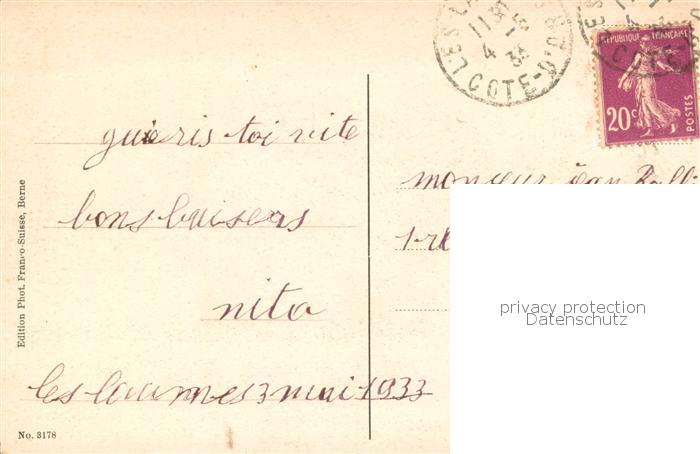 guéris toi vite
bons baisers
nita
les laumes 3 mai 1933
monsieur jean
1 r
Edition Phot. Franco-Suisse, Berne
No. 3178
LES
11
4
33
COTE-D'OR
REPUBLIQUE FRANÇAISE
20c
POSTES
COTE
privacy protection
Datenschutz